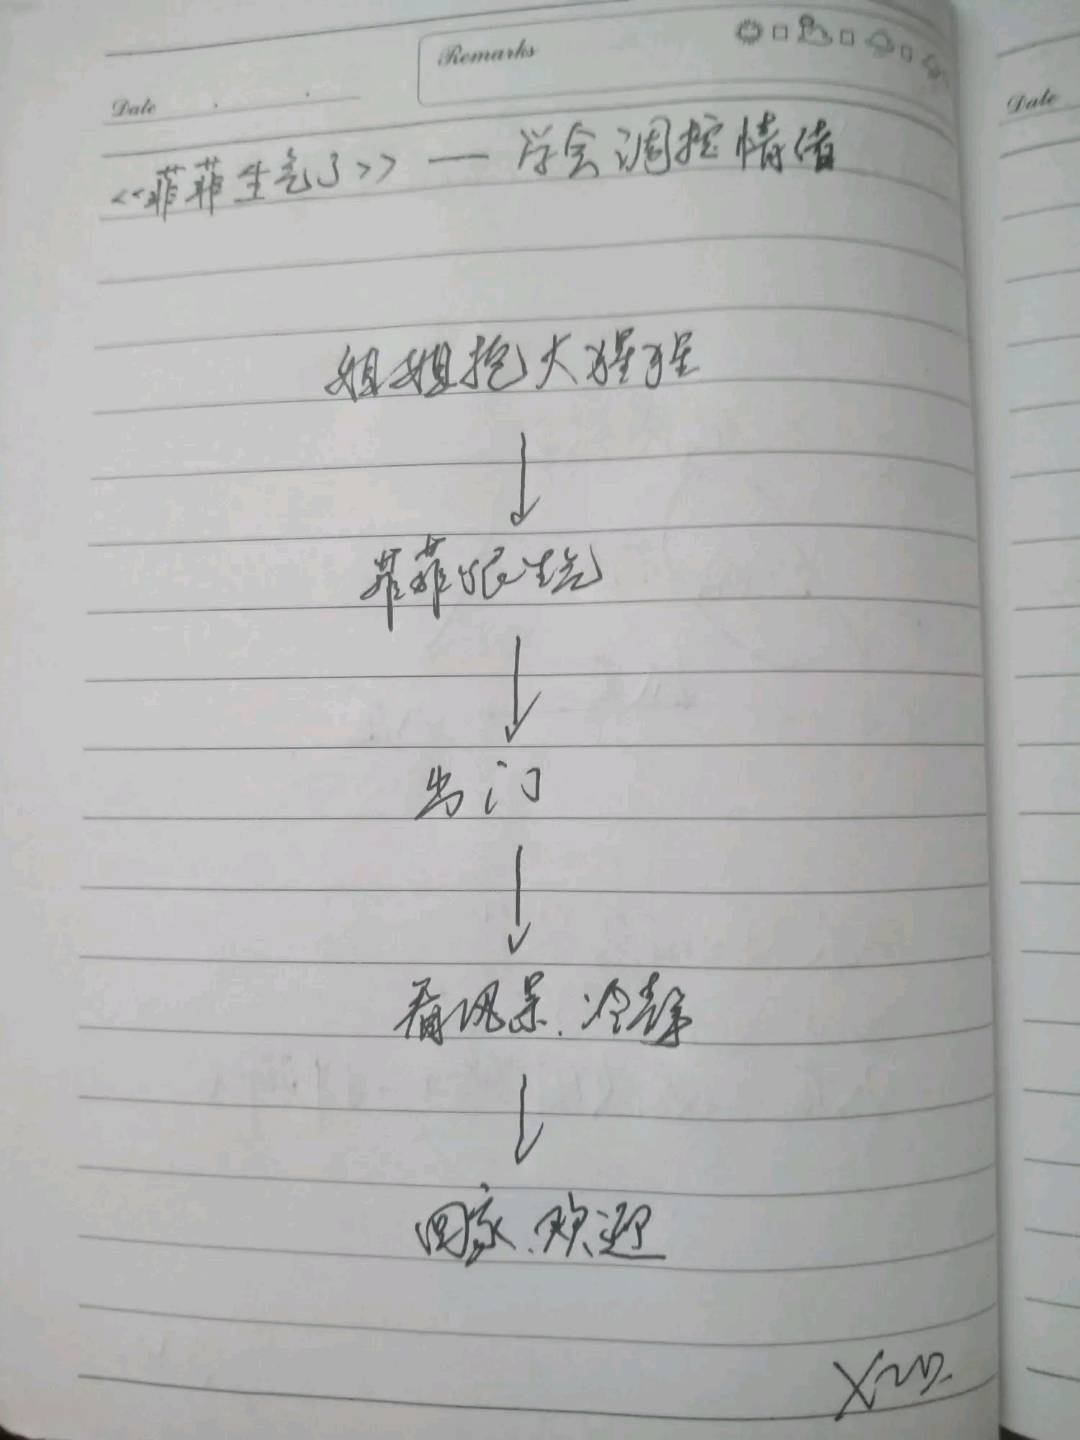 Remarks
Date
Date
<<菲菲生气了>> — 学会调控情绪
姐姐抱大猩猩
↓
菲菲很生气
↓
出门
↓
看风景.冷静
↓
回家.欢迎